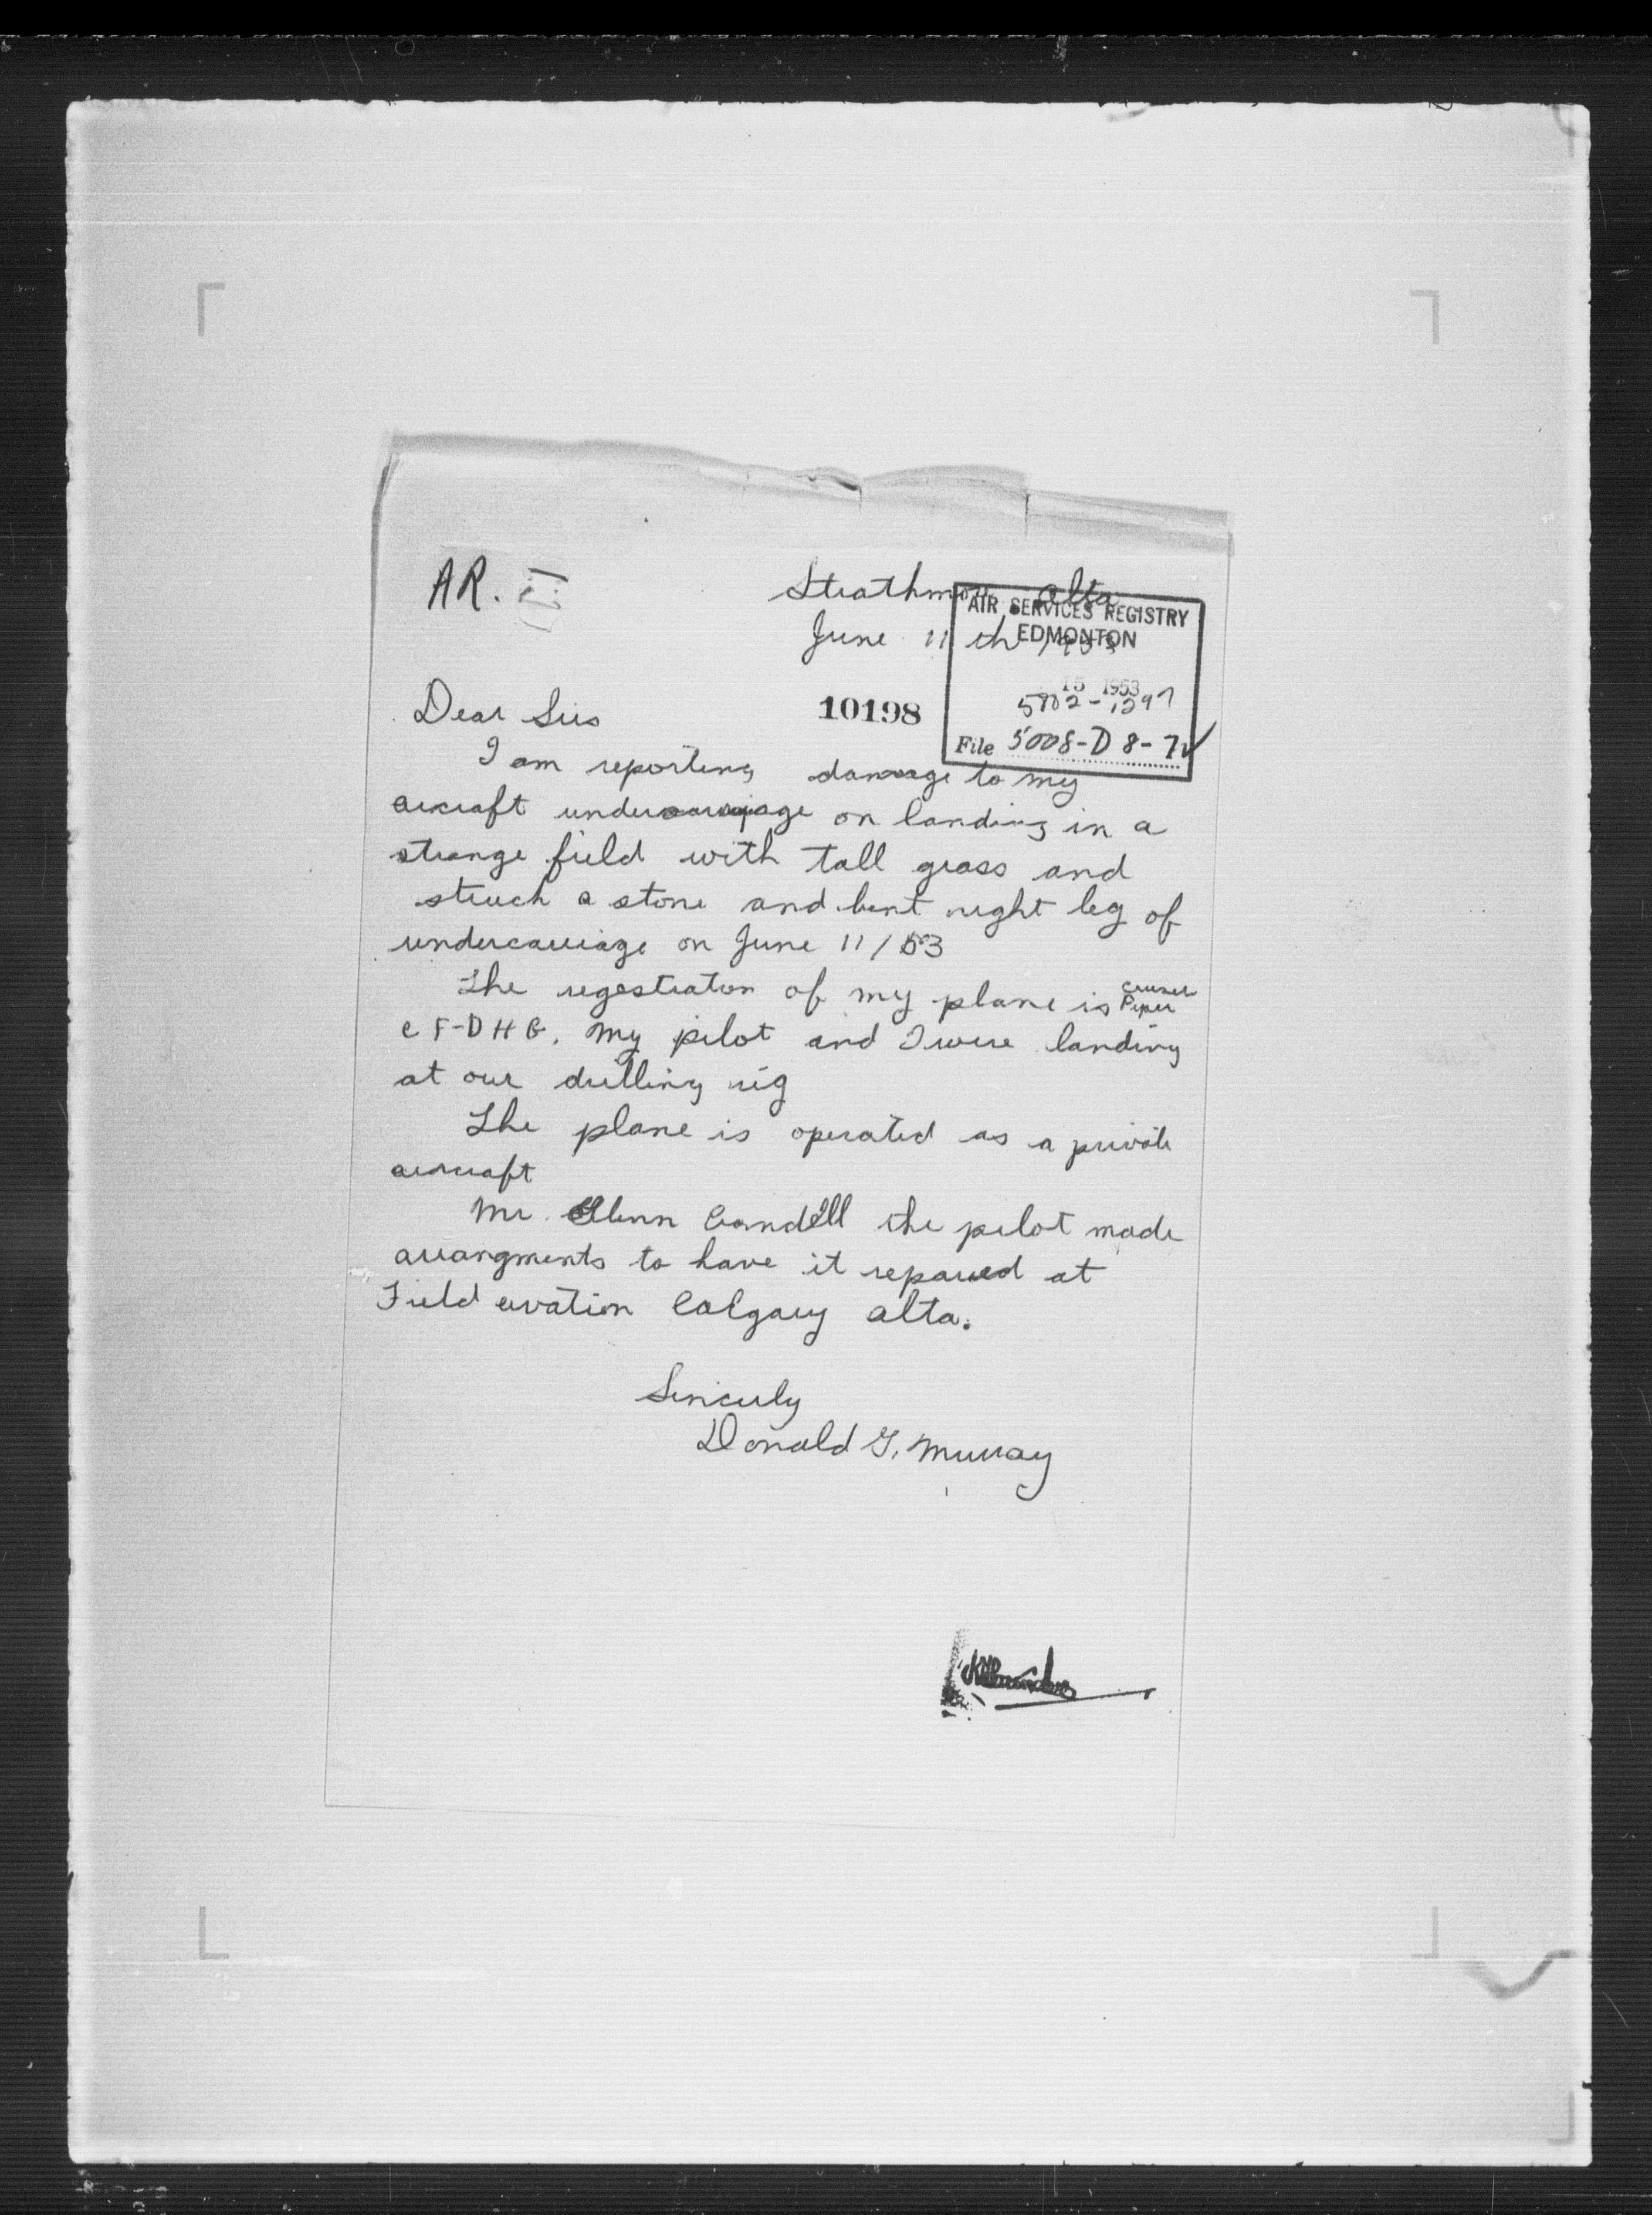 AR.
Strathmore Alta
June 11 th 1953
AIR SERVICES REGISTRY
EDMONTON
15 1953
5802-1297
File 5008-D8-7
10198
Dear Sirs
I am reporting damage to my
aircraft undercarriage on landing in a
strange field with tall grass and
struck a stone and bent right leg of
undercarriage on June 11/53
The regestration of my plane is cruiser Piper
CF-DHG. My pilot and I were landing
at our drilling rig
The plane is operated as a private
aircraft
Mr. Glenn Candell the pilot made
arrangments to have it repaired at
Field aviation Calgary alta.
Sincerly
Donald G. Murray